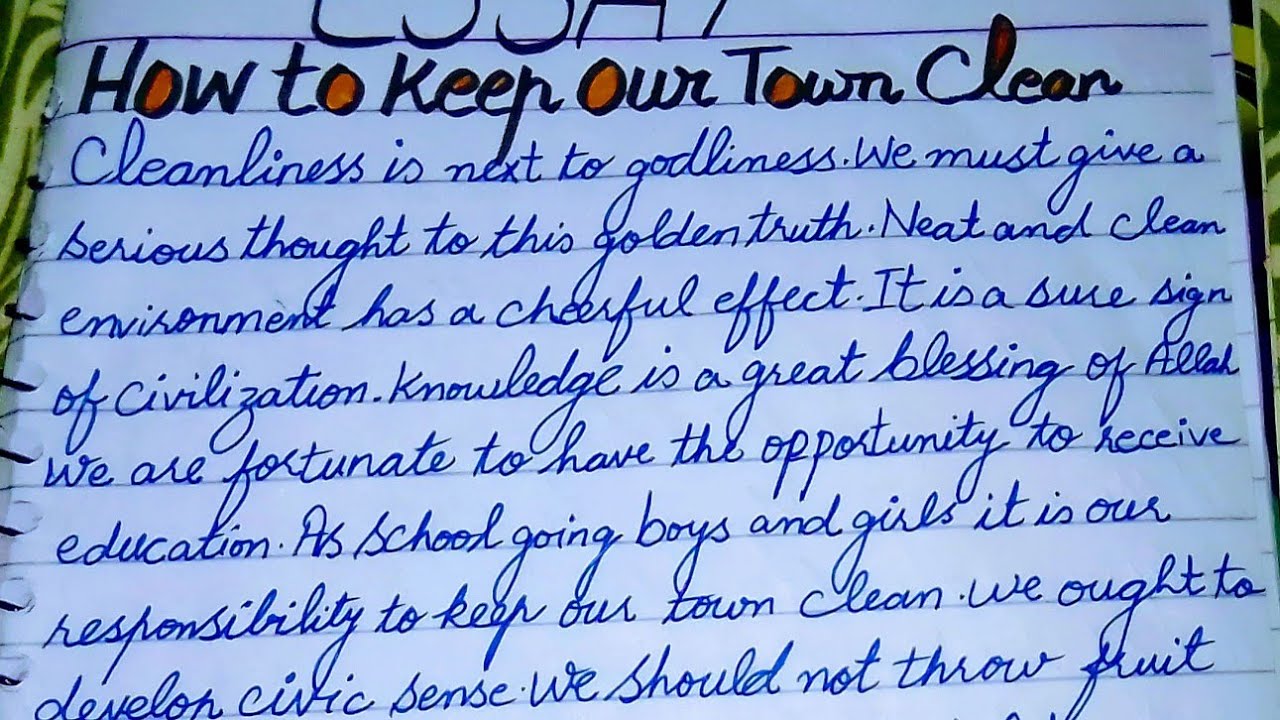 ESSAY
How to Keep Our Town Clean
Cleanliness is next to godliness. We must give a
serious thought to this golden truth. Neat and clean
environment has a cheerful effect. It is a sure sign
of civilization. Knowledge is a great blessing of Allah
We are fortunate to have the opportunity to receive
education. As school going boys and girls it is our
responsibility to keep our town clean. We ought to
develop civic sense. We should not throw fruit